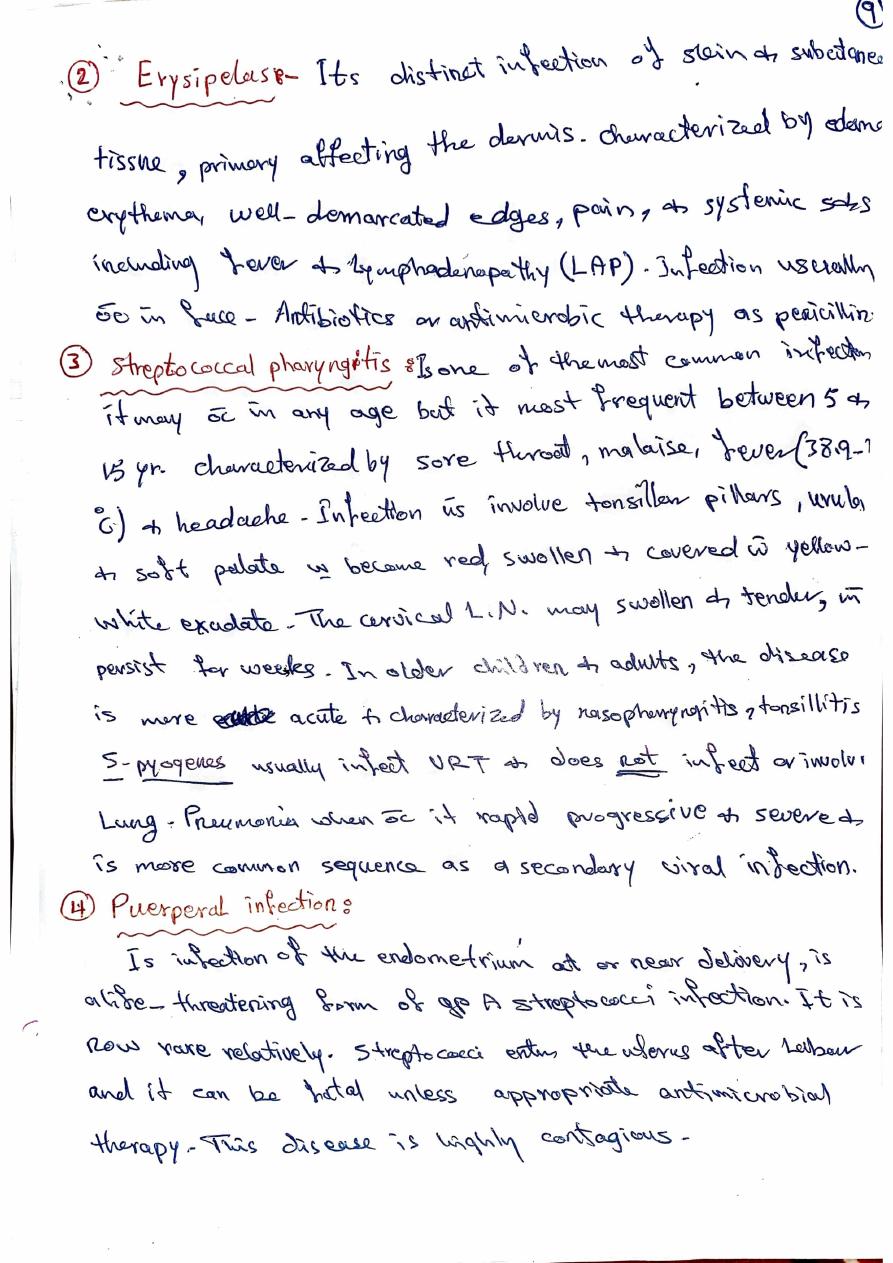 9
② Erysipelas:- Its distinct infection of skin & subcutanee
tissue, primary affecting the dermis. characterized by edema
erythema, well-demarcated edges, pain, & systemic
including fever & lymphadenapathy (LAP). Infection userally
oc in face - Antibiotics or antimicrobic therapy as penicillin.
③ Streptococcal pharyngitis : Is one of the most common infection
it may oc in any age but it most frequent between 5 &
15 yr. characterized by sore throat, malaise, fever (38.9-
°C) & headache - Infection us involve tonsillar pillars, uvula,
& soft palate become red, swollen & covered w̄ yellow-
white exudate - The cervical L.N. may swollen & tender,
persist for weeks. In older children & adults, the disease
is more acute & characterized by nasopharyngitis, tonsillitis
S-pyogenes usually infect URT & does not infect or involve
Lung - Pneumonia when oc it rapid progressive & severe &
is more common sequence as a secondary viral infection.
④ Puerperal infection:
Is infection of the endometrium at or near delivery, is
a life-threatening form of gp A streptococci infection. It is
now rare relatively. Streptococci enter the uterus after Labour
and it can be fatal unless appropriate antimicrobial
therapy - This disease is highly contagious -